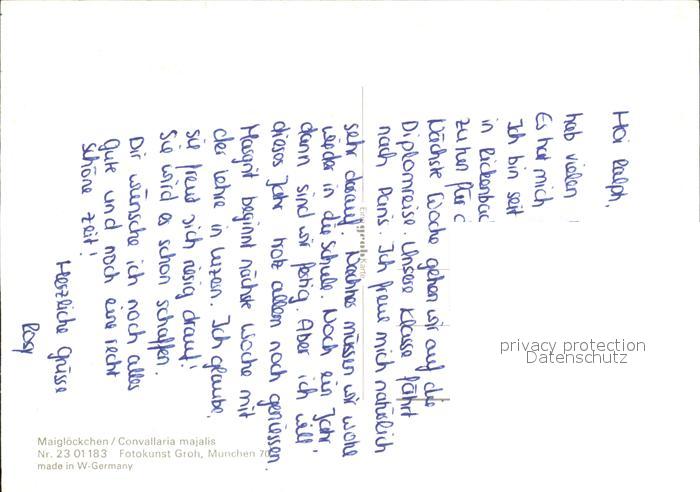 Hoi Ralph,
hab vielen
Es hat mich
Ich bin seit
in Rickenbac
zu tun für d
Nächste Woche gehen wir auf die
Diplomreise. Unsere Klasse fährt
nach Paris. Ich freue mich natürlich
sehr darauf. Nachher müssen wir wohl
wieder in die Schule. Noch ein Jahr,
dann sind wir fertig. Aber ich will
dieses Jahr trotz allem noch geniessen.
Margrit beginnt nächste Woche mit
der Lehre in Luzern. Ich glaube,
sie freut sich riesig drauf!
Sie wird es schon schaffen.
Dir wünsche ich noch alles
gute und noch eine recht
schöne Zeit!
Herzliche Grüsse
Rosy
privacy protection
Datenschutz
Maiglöckchen / Convallaria majalis
Nr. 23 01 183 Fotokunst Groh, München 70
made in W-Germany